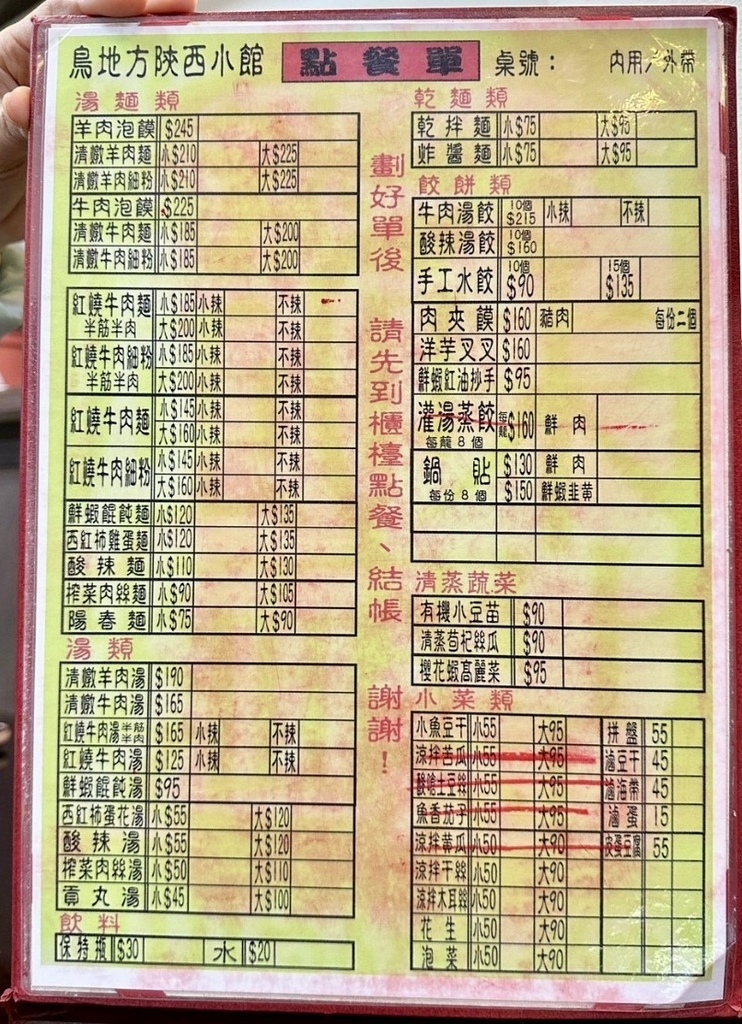 鳥地方陝西小館 點餐單 桌號： 內用／外帶
湯麵類
羊肉泡饃 $245
清燉羊肉麵 小$210 大$225
清燉羊肉細粉 小$210 大$225
牛肉泡饃 $225
清燉牛肉麵 小$185 大$200
清燉牛肉細粉 小$185 大$200
紅燒牛肉麵 小$185 小辣 不辣
半筋半肉 大$200 小辣 不辣
紅燒牛肉細粉 小$185 小辣 不辣
半筋半肉 大$200 小辣 不辣
紅燒牛肉麵 小$145 小辣 不辣
大$160 小辣 不辣
紅燒牛肉細粉 小$145 小辣 不辣
大$160 小辣 不辣
鮮蝦餛飩麵 小$120 大$135
西紅柿雞蛋麵 小$120 大$135
酸辣麵 小$110 大$130
搾菜肉絲麵 小$90 大$105
陽春麵 小$75 大$90
湯類
清燉羊肉湯 $190
清燉牛肉湯 $165
紅燒牛肉湯 半筋半肉 $165 小辣 不辣
紅燒牛肉湯 $125 小辣 不辣
鮮蝦餛飩湯 $95
西紅柿蛋花湯 小$55 大$120
酸辣湯 小$55 大$120
搾菜肉絲湯 小$50 大$110
貢丸湯 小$45 大$100
飲料
保特瓶 $30 水 $20
劃好單後 請先到櫃檯點餐、結帳 謝謝！
乾麵類
乾拌麵 小$75 大$95
炸醬麵 小$75 大$95
餃餅類
牛肉湯餃 10個 $215 小辣 不辣
酸辣湯餃 10個 $160
手工水餃 10個 $90 15個 $135
肉夾饃 $160 豬肉 每份二個
洋芋叉叉 $160
鮮蝦紅油抄手 $95
灌湯蒸餃 每籠 $160 鮮肉
每籠8個
鍋貼 $130 鮮肉
每份8個 $150 鮮蝦韭黄
清蒸蔬菜
有機小豆苗 $90
清蒸苟杞絲瓜 $90
櫻花蝦高麗菜 $95
小菜類
小魚豆干 小55 大95 拼盤 55
涼拌苦瓜 小55 大95 滷豆干 45
酸嗆土豆絲 小55 大95 滷海帶 45
魚香茄子 小55 大95 滷蛋 15
涼拌黃瓜 小50 大90 皮蛋豆腐 55
涼拌干絲 小50 大90
涼拌木耳絲 小50 大90
花生 小50 大90
泡菜 小50 大90